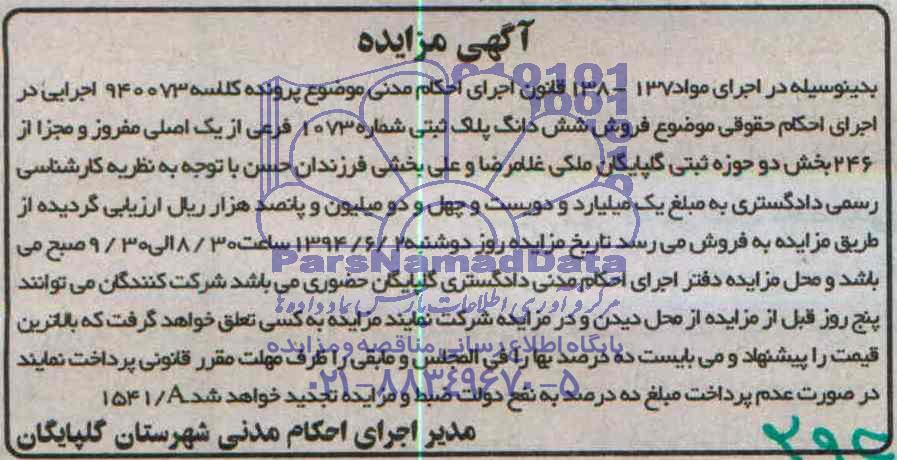 آگهی مزایده
بدینوسیله در اجرای مواد۱۳۷ - ۱۳۸ قانون اجرای احکام مدنی موضوع پرونده کلاسه ۹۴۰۰۷۳ اجرایی در
اجرای احکام حقوقی موضوع فروش شش دانگ پلاک ثبتی شماره ۱۰۷۳ فرعی از یک اصلی مفروز و مجزا از
۲۴۶ بخش دو حوزه ثبتی گلپایگان ملکی غلامرضا و علی بخشی فرزندان حسن با توجه به نظریه کارشناسی
رسمی دادگستری به مبلغ یک میلیارد و دویست و چهل و دو میلیون و پانصد هزار ریال ارزیابی گردیده از
طریق مزایده به فروش می رسد تاریخ مزایده روز دوشنبه ۱۳۹۴/۶/۲ ساعت ۸/۳۰ الی ۹/۳۰ صبح می
باشد و محل مزایده دفتر اجرای احکام مدنی دادگستری گلپایگان حضوری می باشد شرکت کنندگان می توانند
پنج روز قبل از مزایده از محل دیدن و در مزایده شرکت نمایند مزایده به کسی تعلق خواهد گرفت که بالاترین
قیمت را پیشنهاد و می بایست ده درصد بها را فی المجلس و مابقی را ظرف مهلت مقرر قانونی پرداخت نمایند
در صورت عدم پرداخت مبلغ ده درصد به نفع دولت ضبط و مزایده تجدید خواهد شد.۱۵۴۱/A
مدیر اجرای احکام مدنی شهرستان گلپایگان
ParsNamadData
مرکز فرآوری اطلاعات پارس نماد داده ها
پایگاه اطلاع رسانی مناقصه و مزایده
۰۲۱-۸۸۳۴۹۶۷۰-۵